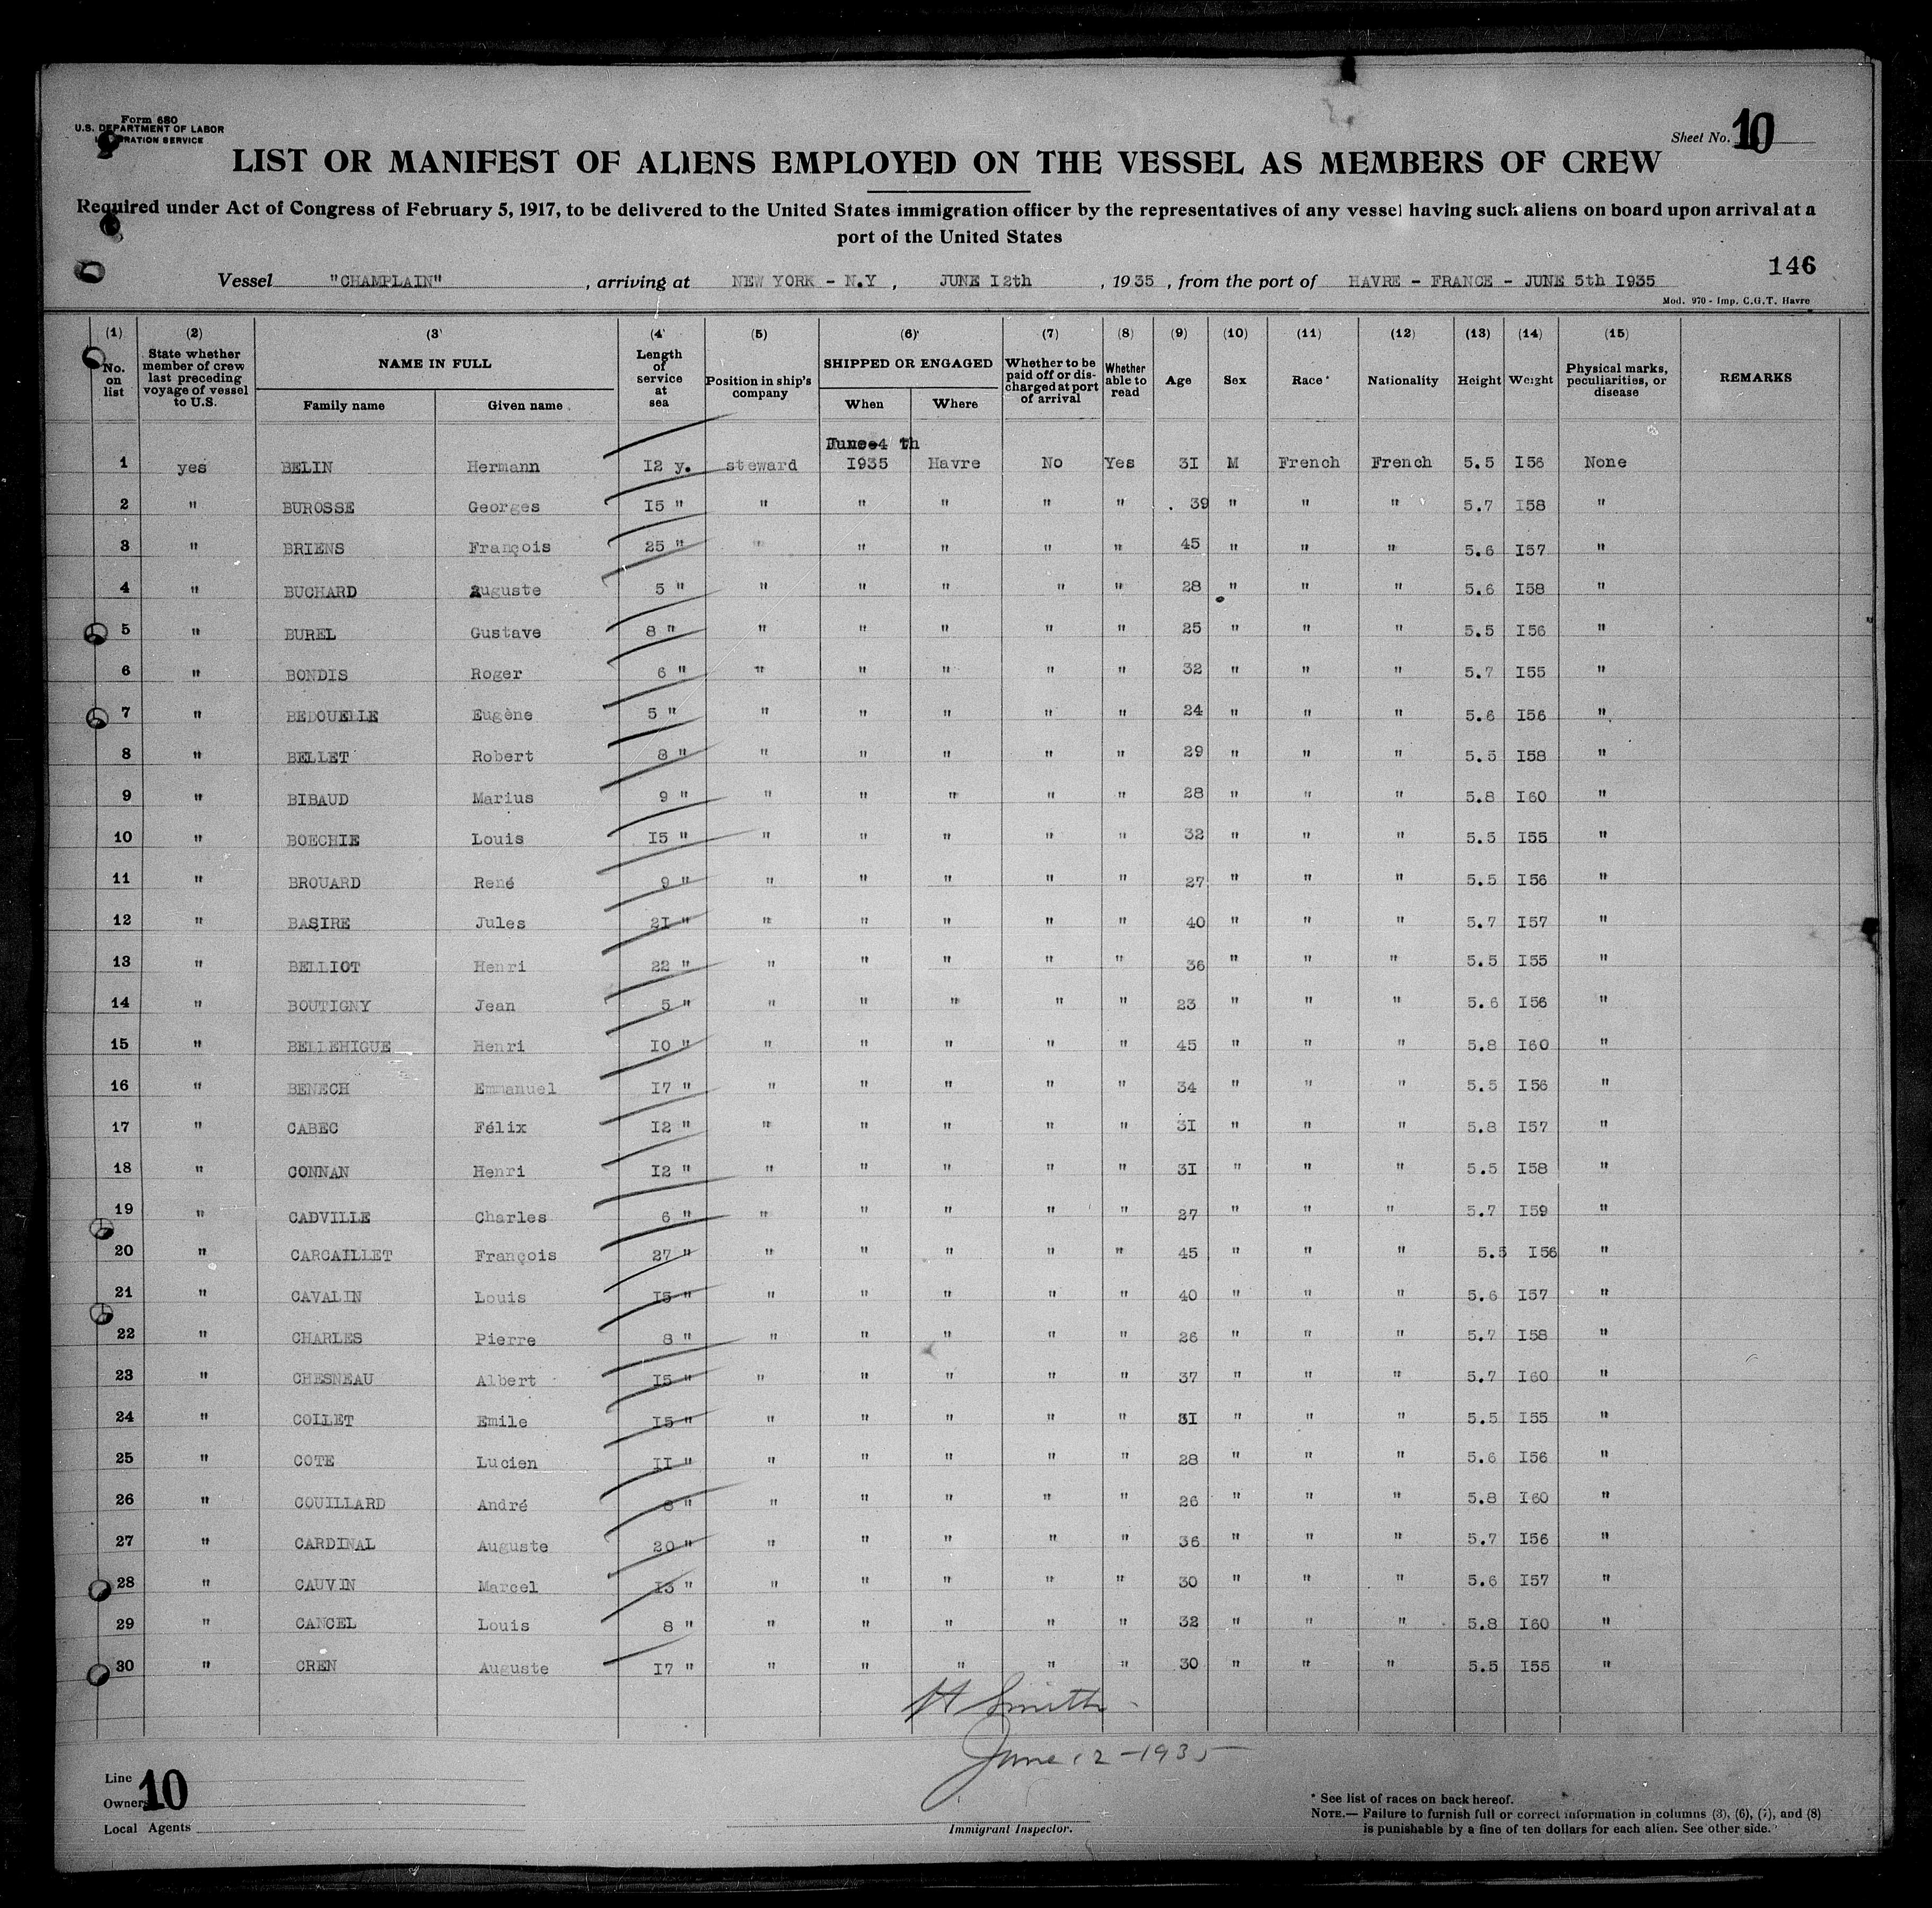 Form 680
U.S. DEPARTMENT OF LABOR
SERVICE
Sheet No. 10
LIST OR MANIFEST OF ALIENS EMPLOYED ON THE VESSEL AS MEMBERS OF CREW
Required under Act of Congress of February 5, 1917, to be delivered to the United States immigration officer by the representatives of any vessel having such aliens on board upon arrival at a
port of the United States
146
Vessel "CHAMPLAIN" , arriving at NEW YORK - N.Y , JUNE I2th , 1935 , from the port of HAVRE - FRANCE - JUNE 5th I935
Mod. 970 - Imp. C.G.T. Havre
(1) (2) (3) (4) (5) (6) (7) (8) (9) (10) (11) (12) (13) (14) (15)
No. on list State whether member of crew last preceding voyage of vessel to U.S. NAME IN FULL Family name Given name Length of service at sea Position in ship's company SHIPPED OR ENGAGED When Where Whether to be paid off or discharged at port of arrival Whether able to read Age Sex Race* Nationality Height Weight Physical marks, peculiarities, or disease REMARKS
June 4 th
1 yes BELIN Hermann I2 y. steward I935 Havre No Yes 3I M French French 5.5 I56 None
2 " BUROSSE Georges I5 " " " " " " 39 " " " 5.7 I58 "
3 " BRIENS François 25 " " " " " " 45 " " " 5.6 I57 "
4 " BUCHARD Auguste 5 " " " " " " 28 " " " 5.6 I58 "
5 " BUREL Gustave 8 " " " " " " 25 " " " 5.5 I56 "
6 " BONDIS Roger 6 " " " " " " 32 " " " 5.7 I55 "
7 " BEDOUELLE Eugène 5 " " " " " " 24 " " " 5.6 I56 "
8 " BELLET Robert 8 " " " " " " 29 " " " 5.5 I58 "
9 " BIBAUD Marius 9 " " " " " " 28 " " " 5.8 I60 "
10 " BOECHIE Louis I5 " " " " " " 32 " " " 5.5 I55 "
11 " BROUARD René 9 " " " " " " 27 " " " 5.5 I56 "
12 " BASIRE Jules 2I " " " " " " 40 " " " 5.7 I57 "
13 " BELLIOT Henri 22 " " " " " " 36 " " " 5.5 I55 "
14 " BOUTIGNY Jean 5 " " " " " " 23 " " " 5.6 I56 "
15 " BELLEHIGUE Henri I0 " " " " " " 45 " " " 5.8 I60 "
16 " BENECH Emmanuel I7 " " " " " " 34 " " " 5.5 I56 "
17 " CABEC Félix I2 " " " " " " 3I " " " 5.8 I57 "
18 " CONNAN Henri I2 " " " " " " 3I " " " 5.5 I58 "
19 " CADVILLE Charles 6 " " " " " " 27 " " " 5.7 I59 "
20 " CARCAILLET François 27 " " " " " " 45 " " " 5.5 I56 "
21 " CAVALIN Louis I5 " " " " " " 40 " " " 5.6 I57 "
22 " CHARLES Pierre 8 " " " " " " 26 " " " 5.7 I58 "
23 " CHESNEAU Albert I5 " " " " " " 37 " " " 5.7 I60 "
24 " COLLET Emile I5 " " " " " " 3I " " " 5.5 I55 "
25 " COTE Lucien II " " " " " " 28 " " " 5.6 I56 "
26 " COUILLARD André 8 " " " " " " 26 " " " 5.8 I60 "
27 " CARDINAL Auguste 20 " " " " " " 36 " " " 5.7 I56 "
28 " CAUVIN Marcel I3 " " " " " " 30 " " " 5.6 I57 "
29 " CANCEL Louis 8 " " " " " " 32 " " " 5.8 I60 "
30 " CREN Auguste I7 " " " " " " 30 " " " 5.5 I55 "
H Smith
June 12 - 1935
Line
Owners
10
Local Agents
Immigrant Inspector.
* See list of races on back hereof.
NOTE.— Failure to furnish full or correct information in columns (3), (6), (7), and (8)
is punishable by a fine of ten dollars for each alien. See other side.